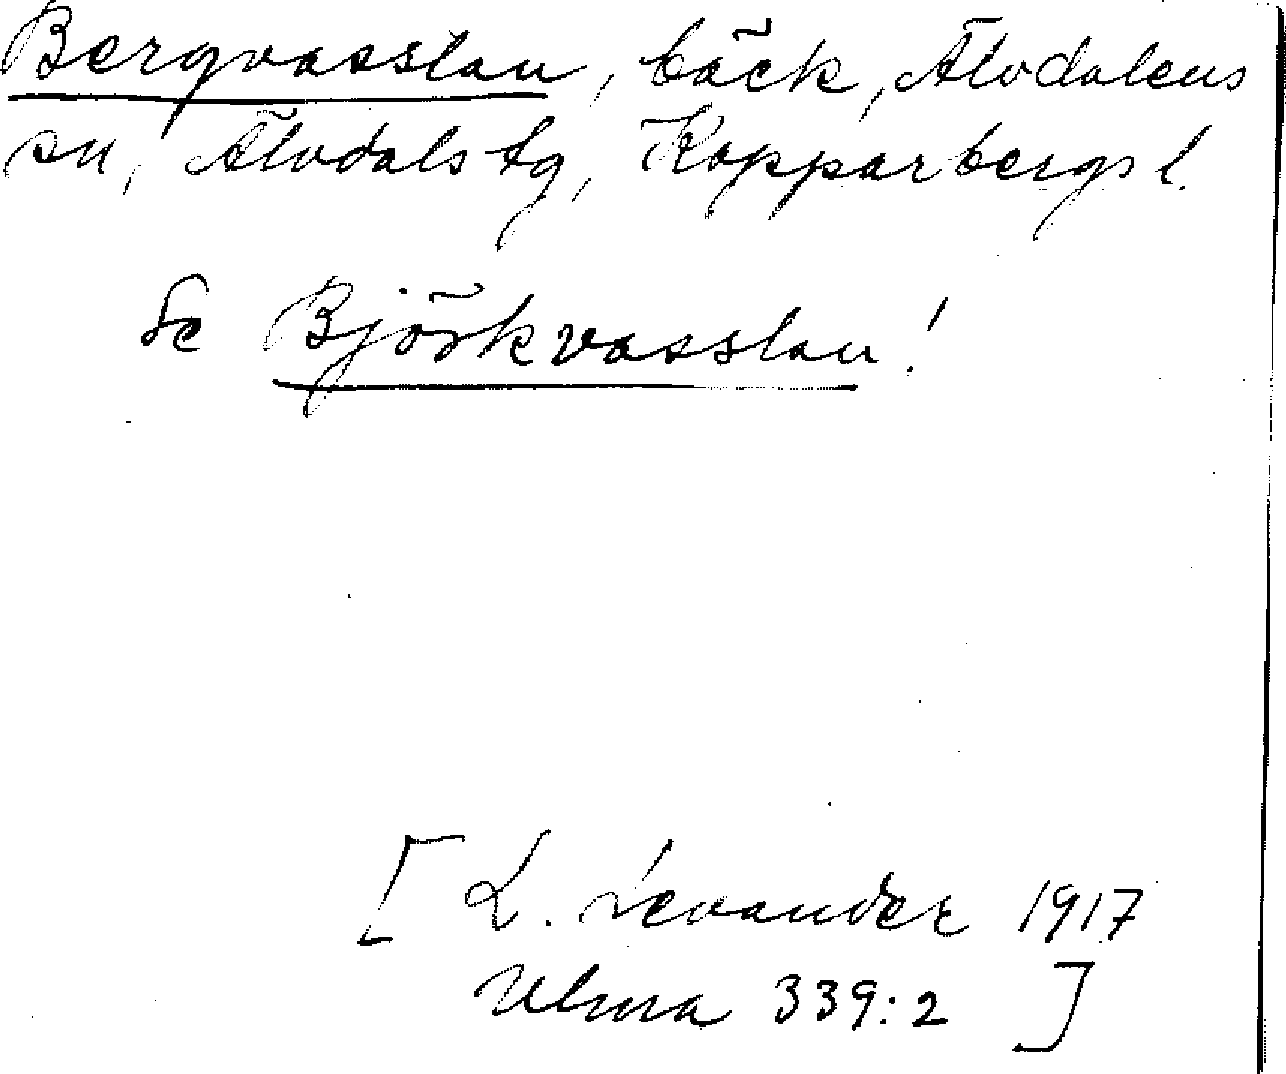 Bergvasslan, bäck, Älvdalens
sn, Älvdals tg, Kopparbergs l.
Se Björkvasslan!
[ L. Levander 1917
Ulma 339:2 ]